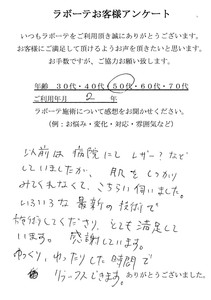 ラボーテお客様アンケート
いつもラボーテをご利用頂き誠にありがとうございます。
お客様にご満足して頂けるようお声を頂きたいと思います。
お手数ですが、ご協力お願い致します。
年齢 30代・40代・50代・60代・70代
ご利用年月 2 年
ラボーテ施術について感想をお聞かせください。
(例:お悩み・変化・対応・雰囲気など)
以前は病院にし レザー?など
していましたが、肌をしっかり
みてくれなくて、こちらに伺いました。
いろいろな最新の技術で
施術してくださり、とても満足して
います。感謝しています。
ゆっくり、ゆったりした時間で
リラックスできます。
ありがとうございました。